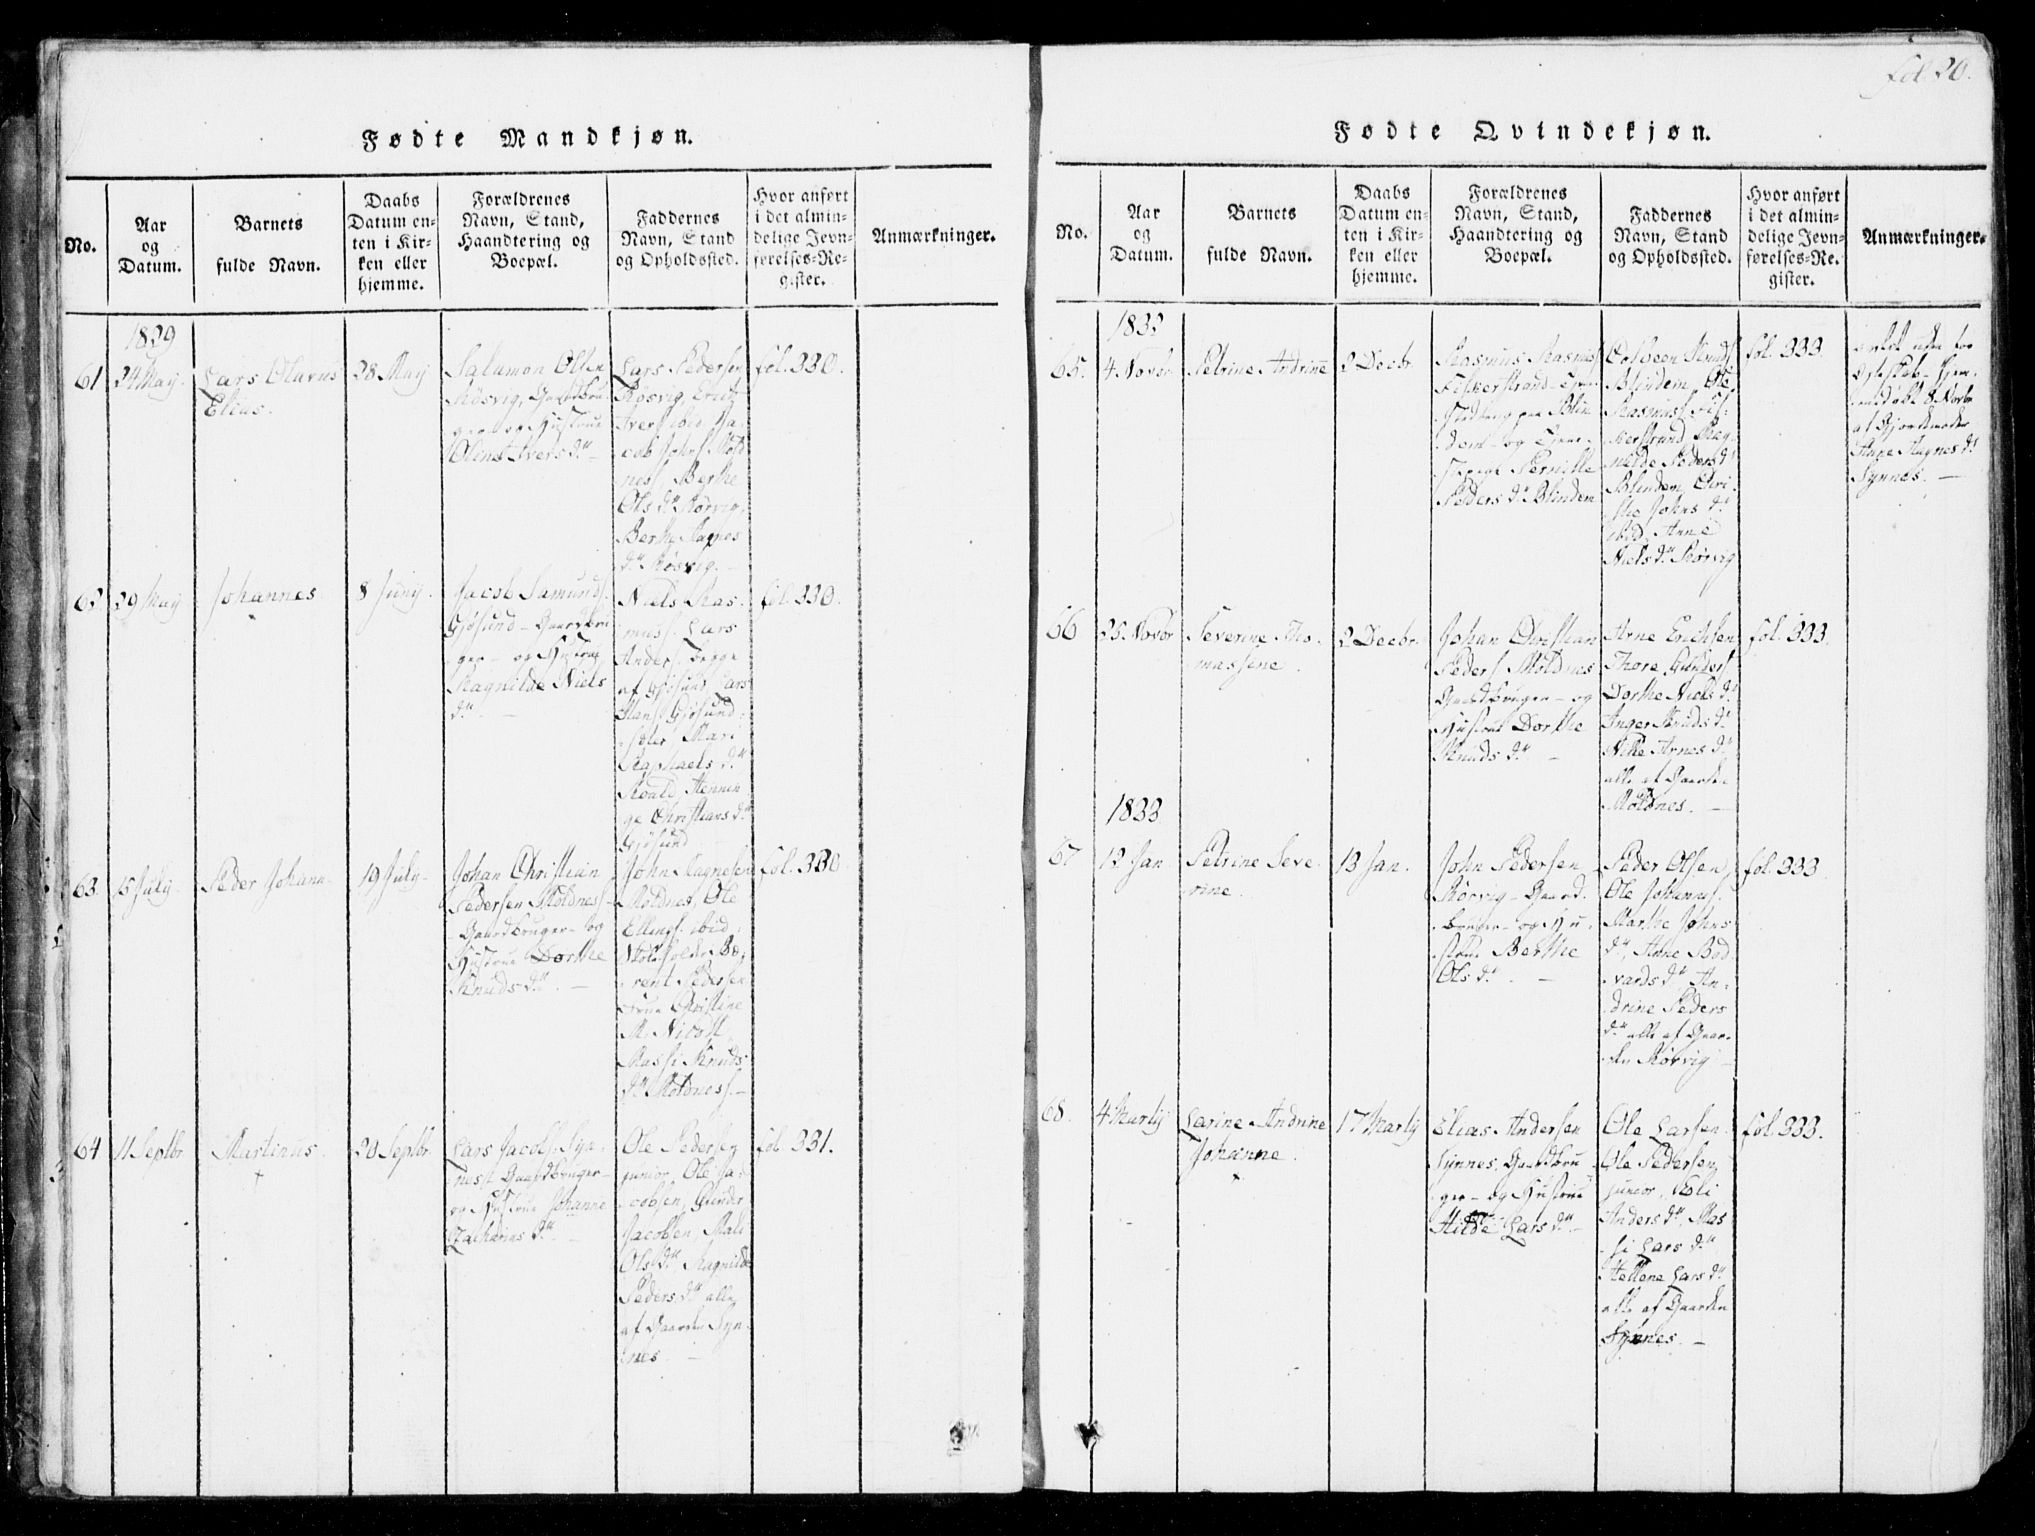 fol. 20.
Fødte Mandkjøn.
No.
Aar
og
Datum.
Barnets
fulde Navn.
Daabs
Datum en-
ten i Kir-
ken eller
hjemme.
Forældrenes
Navn, Stand,
Haandtering og
Boepæl.
Faddernes
Navn, Stand
og Opholdssted.
Hvor anført
i det almin-
delige Jevn-
førelses-Re-
gister.
Anmærkninger.
1829
61
24 May.
Lars Olavus
Elias.
28 May
Salamon Olsen
Røsvig, Gaardbru-
ger og Hustrue
Olene Ivers dr. -
Lars Pedersen
Røsvig, Erich
Ivers. ibid, Ja-
cob Johns. Mold
nes, Berthe
Ols dr. Rørvig,
Berthe Magnes
dr. Røsvig. -
fol. 330.
62
29 May
Johannes
8 Juny.
Jacob Samunds.
Gjøsund - Gaardbru
ger - og Hustrue
Ragnilde Niels
dr. -
Niels Ras-
muss. Lars
Anders. begge
af Gjøsund, Lars
Hans. Gjøsund
Mari
Raphaels dr.
Roald, Hennin
ge Christians dr.
Gjøsund
fol. 330.
63
15 July.
Peder Johann
19 July-
Johan Christian
Pedersen Moldness
- Gaardbruger - og
Hustrue Dorthe
Knuds dr. -
John Magnesen
Moldnes, Ole
Ellings. ibid,
Skoleholder Be-
rent Pedersen
Christine
M. Nicol
Massi Knuds
dr. Moldness. -
fol. 330
64
11 Septbr
Martinus.
20 Septbr.
Lars Jacobs. Syn-
nes, Gaardbruger -
og Hustrue Johanne
Zacharias dr. -
Ole Pedersen
junior, Ole Ja-
cobsen, Gunder
Jacobsen, Mali
Ols dr., Ragnilde
Peders dr. alle
af Gaarden Syn-
nes. -
fol. 331.
Fødte Qvindekjøn.
No.
Aar
og
Datum.
Barnets
fulde Navn.
Daabs
Datum en-
ten i Kir-
ken eller
hjemme.
Forældrenes
Navn, Stand,
Haandtering og
Boepæl.
Faddernes
Navn, Stand
og Opholdssted.
Hvor anført
i det almin-
delige Jevn-
førelses-Re-
gister.
Anmærkninger.
1832
65.
4 Novbr
Petrine Andrine
2 Decbr
Rasmus Rasmuss.
Fiskerstrand -
paa Blin
dem - og
Pernille
Peders dr. Blindem
Colbeen Knuds.
Blindem, Ole
Rasmuss. Fis-
kerstrand, Rag-
nilde Peders dr.
Blindem, Chri-
the Johns dr.
ibid, Anne
Niels dr. Rørvig
fol. 333
uden for
Egteskab - hjem-
medøbt 8 Novbr
af Gjordemoder
Anne Magnes dr.
Synnes. -
66
25 Novbr
Severine Tho-
massene.
2 Decbr.
Johan Christian
Peders. Moldnes
Gaardbruger - og
Hustrue Dorthe
Knuds dr. -
Arne Erichsen
Thore Gunders.
Dorthe Niels dr.
Inger Knuds dr.
Arnes dr.
alle af Gaarden
Moldnes. -
fol. 333.
1833
67
12 Jan
Petrine Seve-
rine.
13 Jan.
John Pedersen
Rørvig - Gaard-
bruger - og Hu-
strue Berthe
Ols dr. -
Peder Olsen,
Ole Johannes.
Marthe Johns-
dr., Anne Bod-
vards dr. An-
drine Peders
dr. alle af Gaar-
den Rørvig -
fol. 333.
68.
4 Martij
Larine Andrine
Johanne.
17 Martij
Elias Andersen
Synnes, Gaardbru
ger - og Hustrue
Hilde Lars dr. -
Ole Larsen
Ole Pedersen
junior, Boli
Anders dr., Mas
si Lars dr.
Hellene Lars dr.
alle af Gaarden
Synnes. -
fol. 333.